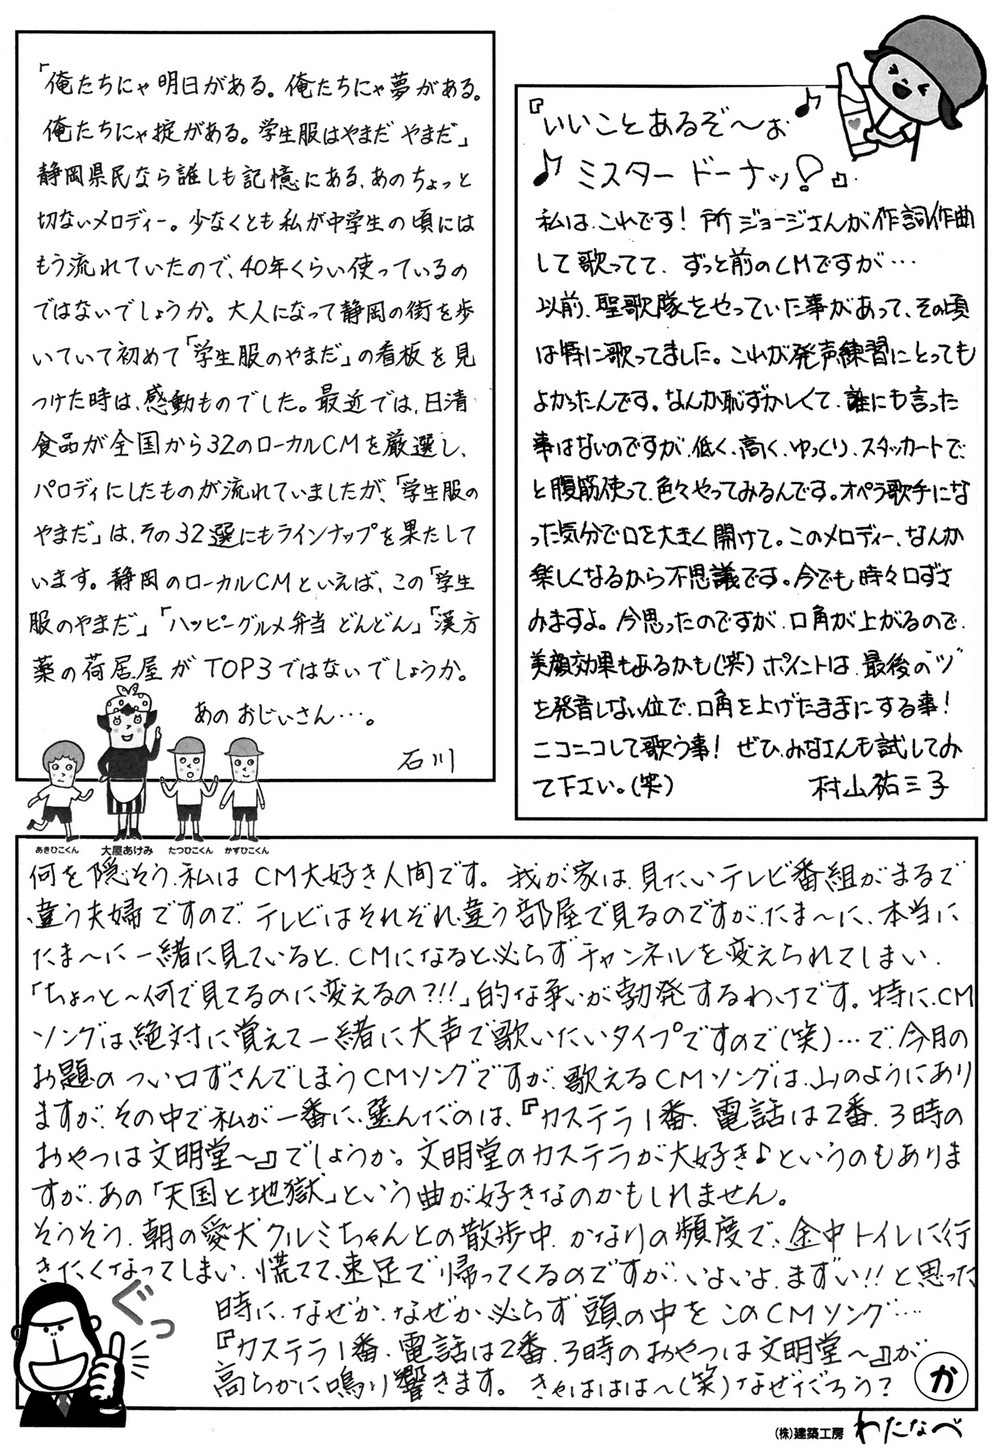 「俺たちにゃ明日がある。俺たちにゃ夢がある。
俺たちにゃ掟がある。学生服はやまだ やまだ」
静岡県民なら誰しも記憶にある、あのちょっと
切ないメロディー。少なくとも私が中学生の頃には
もう流れていたので、40年くらい使っているの
ではないでしょうか。大人になって静岡の街を歩
いていて初めて「学生服のやまだ」の看板を見
つけた時は、感動ものでした。最近では、日清
食品が全国から32のローカルCMを厳選し、
パロディにしたものが流れていましたが、「学生服の
やまだ」は、その32選にもラインナップを果たして
います。静岡のローカルCMといえば、この「学生
服のやまだ」「ハッピーグルメ弁当 どんどん」「漢方
薬の荷居屋がTOP3ではないでしょうか。
あのおじいさん…。
石川
あきひこくん 大屋あけみ たつひこくん かずひこくん
『いいことあるぞ〜お♪
♪ミスタードーナッ!?』
私は、これです! 所ジョージさんが作詞作曲
して歌ってて、ずっと前のCMですが…
以前、聖歌隊をやっていた事があって、その頃
は特に歌ってました。これが発声練習にとっても
よかったんです。なんか恥ずかしくて、誰にも言った
事はないのですが、低く、高く、ゆっくり、スタッカートで、
と腹筋使って、色々やってみるんです。オペラ歌手にな
った気分で口を大きく開けて。このメロディー、なんか
楽しくなるから不思議です。今でも時々口ずさ
みますよ。今思ったのですが、口角が上がるので、
美顔効果もあるかも(笑) ポイントは、最後の"ツ"
を発音しない位で、口角を上げたままにする事!
ニコニコして歌う事! ぜひ、みなさんも試してみ
て下さい。(笑) 村山祐三子
何を隠そう、私はCM大好き人間です。我が家は、見たいテレビ番組がまるで
違う夫婦ですので、テレビはそれぞれ違う部屋で見るのですが、たま〜に、本当に
たま〜に一緒に見ていると、CMになると必らずチャンネルを変えられてしまい、
「ちょっと〜何で見てるのに変えるの?!!」的な争いが勃発するわけです。特に、CM
ソングは絶対に覚えて一緒に大声で歌いたいタイプですので(笑)…で、今月の
お題のつい口ずさんでしまうCMソングですが、歌えるCMソングは、山のようにあり
ますが、その中で私が一番に、選んだのは、『カステラ1番、電話は2番、3時の
おやつは文明堂〜』でしょうか。文明堂のカステラが大好き♪というのもありま
すが、あの「天国と地獄」という曲が好きなのかもしれません。
そうそう、朝の愛犬クルミちゃんとの散歩中、かなりの頻度で、途中トイレに行
きたくなってしまい、慌てて、速足で帰ってくるのですが、いよいよ、まずい!!と思った
時に、なぜか、なぜか必らず頭の中をこのCMソング…
『カステラ1番、電話は2番、3時のおやつは文明堂〜』が
高らかに鳴り響きます。きゃははは〜(笑)なぜだろう?
か
ぐっ
(株)建築工房 わたなべ